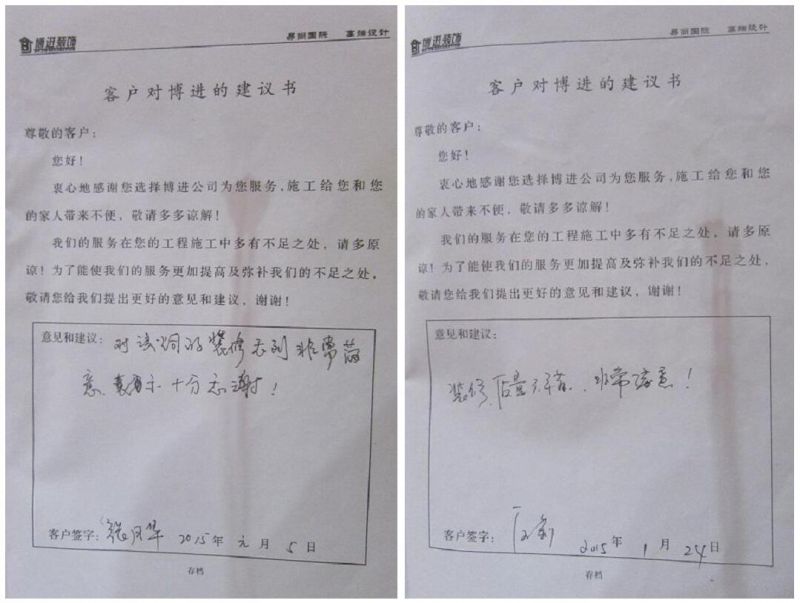 博进装饰
客户对博进的建议书
尊敬的客户：
您好！
衷心地感谢您选择博进公司为您服务，施工给您和您
的家人带来不便，敬请多多谅解！
我们的服务在您的工程施工中多有不足之处，请多原
谅！为了能使我们的服务更加提高及弥补我们的不足之处，
敬请您给我们提出更好的意见和建议，谢谢！
意见和建议：对该公司的装修感到非常满
意，表示十分感谢！
客户签字：2015年元月5日
存档
博进装饰
客户对博进的建议书
尊敬的客户：
您好！
衷心地感谢您选择博进公司为您服务，施工给您和您
的家人带来不便，敬请多多谅解！
我们的服务在您的工程施工中多有不足之处，请多原
谅！为了能使我们的服务更加提高及弥补我们的不足之处，
敬请您给我们提出更好的意见和建议，谢谢！
意见和建议：
装修质量不错，非常满意！
客户签字：2015年1月24日
存档